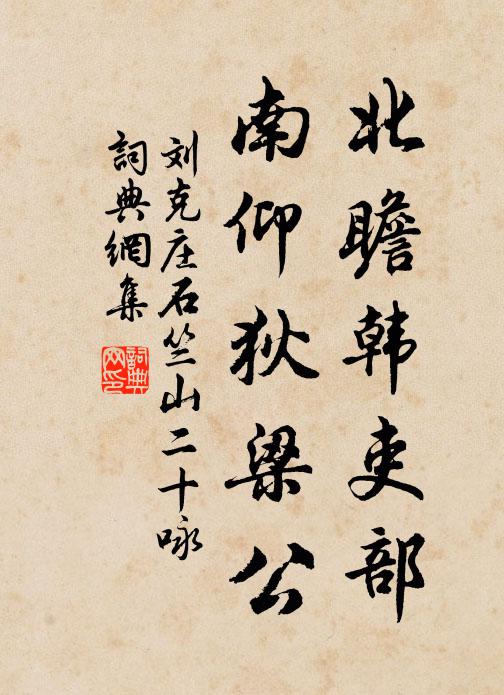 北瞻韩吏部
南仰狄梁公
刘克庄石竺山二十咏
詞典網集
詞典網印